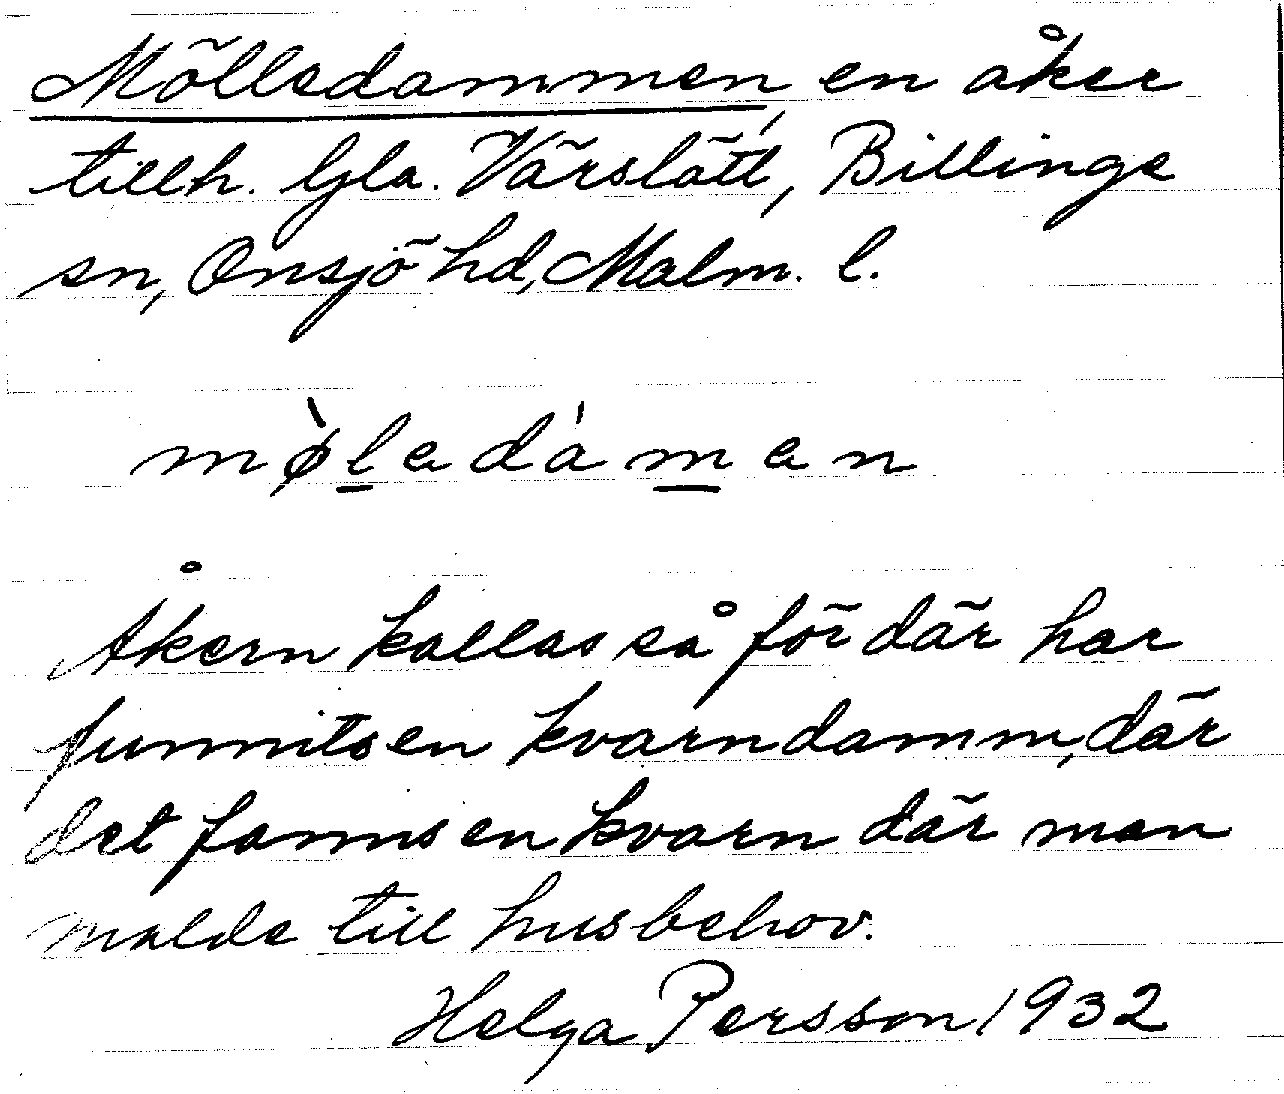 Mölledammen, en åker
tillh. Gla. Värslätt, Billinge
sn, Onsjö hd, Malm. l.
mø̀ḻedá m̱en
Åkern kallas så för där har
funnits en kvarndamm, där
det fanns en kvarn där man
malde till husbehov.
Helga Persson 1932